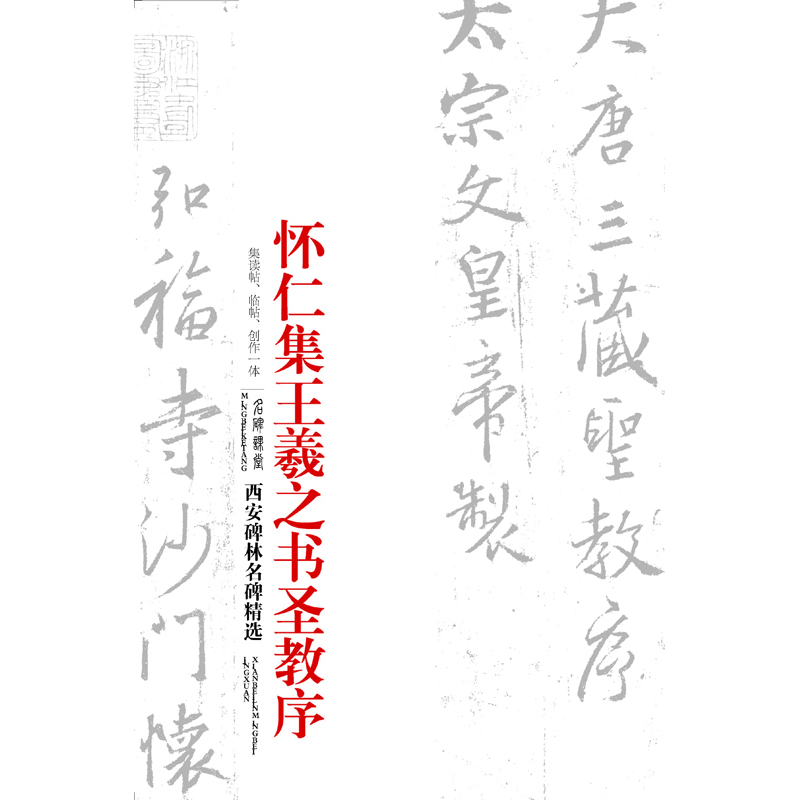 大唐三藏聖教序
太宗文皇帝製
怀仁集王羲之书圣教序
集读帖、临帖、创作一体
名碑課堂
MINGBEIKETANG
西安碑林名碑精选
XIANBEILINMINGBEI
JINGXUAN
弘福寺沙門懷